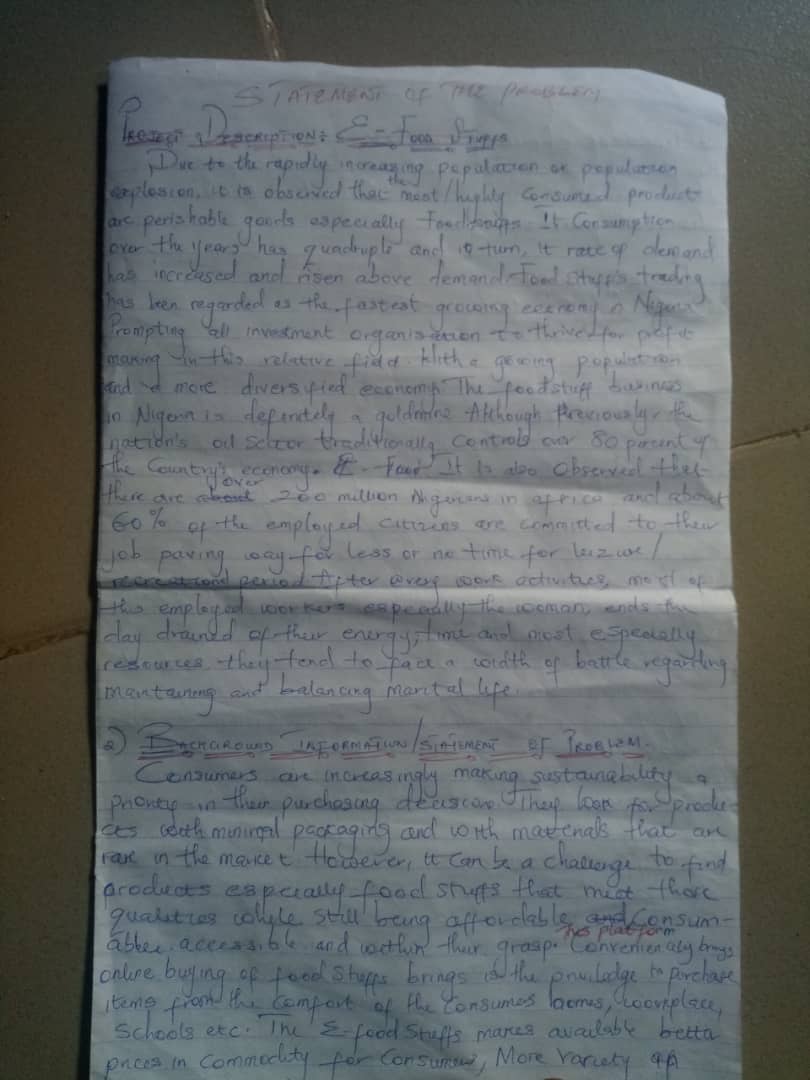 STATEMENT OF THE PROBLEM
PROJECT DESCRIPTION: E-Food Stuffs
Due to the rapidly increasing population or population
explosion, it is observed that the most/highly consumed product
are perishable goods especially Foodstuffs. It Consumption
over the years has quadruple and in turn, it rate of demand
has increased and risen above demand. Food stuffs trading
has been regarded as the fastest growing economy in Nigeria
Prompting all investment organisation to thrive for profit
making in this relative field. With a growing population
and a more diversified economy. The foodstuff business
in Nigeria is definitely a goldmine. Although Previously, the
nation's oil sector traditionally controls over 80 percent of
the Country's economy. It is also Observed that
there are about over 200 million Nigerians in africa and about
60% of the employed citizens are committed to their
job paving way for less or no time for leizure/
recreational period. After every work activities, most of
this employed workers especially the woman, ends the
day drained of their energy, time and most especially
resources, they tend to face a width of battle regarding
maintaining and balancing marital life.
2) BACKGROUND INFORMATION/STATEMENT OF PROBLEM.
Consumers are increasingly making sustainability a
priority in their purchasing decision. They look for produ-
cts with minimal packaging and with materials that are
rare in the market. However, it can be a challenge to find
products especially food stuffs that meet those
qualities while still being affordable, and consum-
able, accessible and within their grasp. This platform Conveniently brings
online buying of food stuffs brings the priviledge to purchase
items from the comfort of the consumers homes, workplace,
Schools etc. The E-food Stuffs makes available betta
prices in Commodity for Consumers, More Variety of